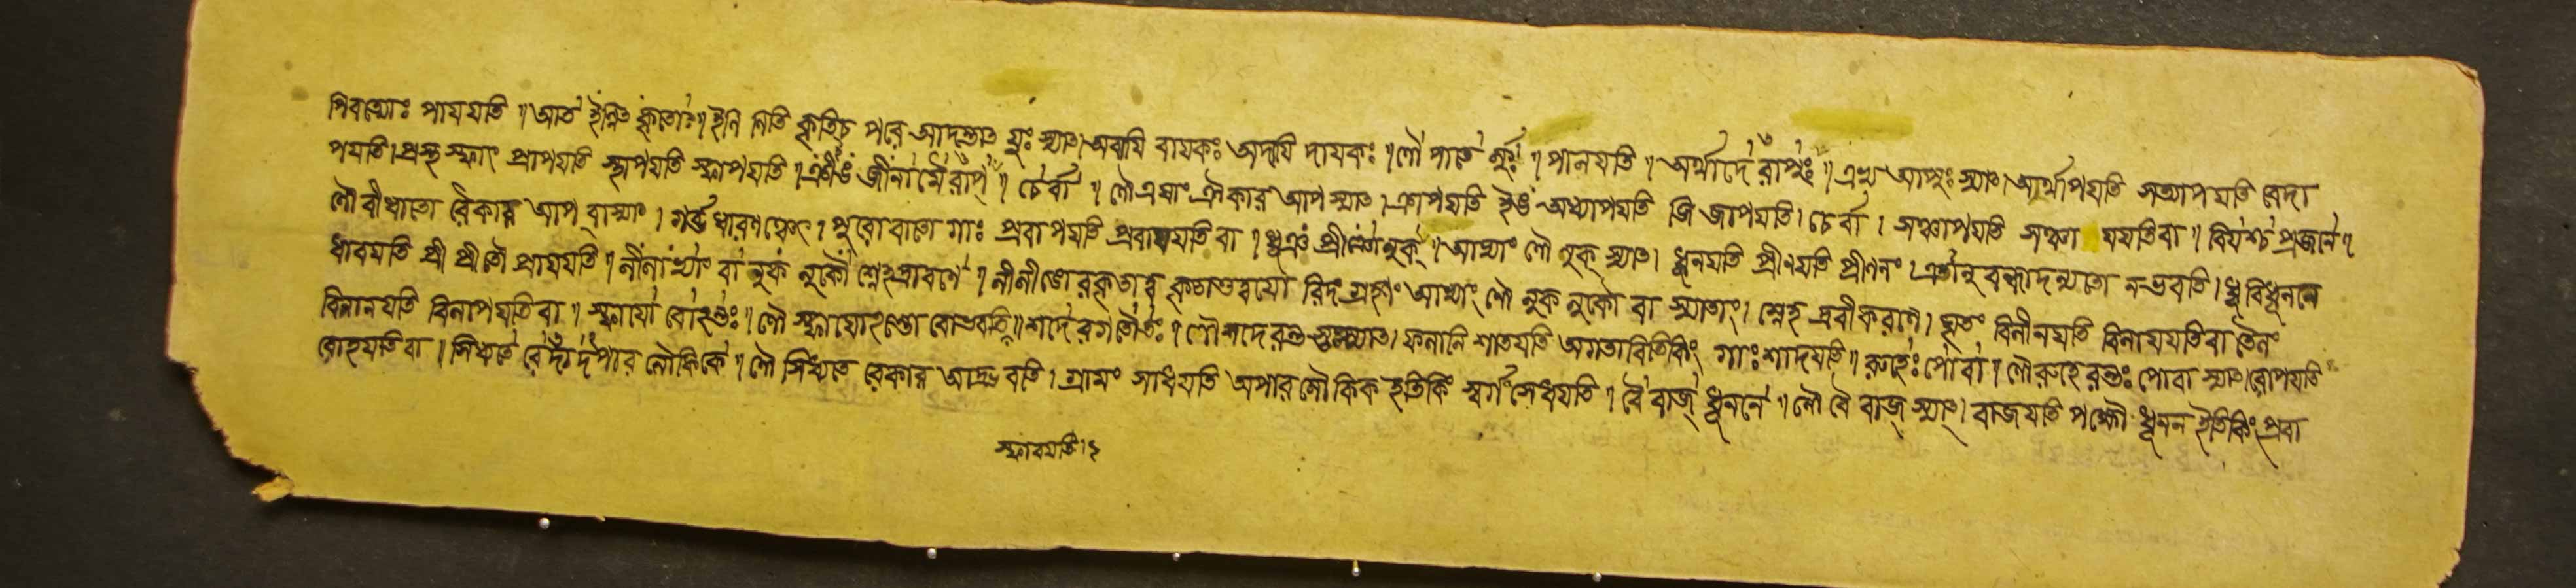 পিবত্যোঃ পাযযতি ॥ আত ইঞ্ণিচ কৃতোঃ ॥ ইনি ণিতি কৃতিচ পরে আদন্তাৎ যুঃ স্যাৎ। অবাযি বাযকঃ অদাযি দাযকঃ ॥ লৌ পাতে র্নুঃ ॥ পালযতি ॥ অর্থাদে রাপ্নুঃ ॥ এষু আপ্নুঃ স্যাৎ। আর্থাপযতি সত্যাপযতি বেদা
পযতি। প্রস্থ স্ফাং প্রাপযতি স্থাপযতি স্ফাপযতি। ঐীঙ জীনামৈ রাপ্ ॥ চের্বা ॥ লৌ এষাং ঐকার আপ স্যাৎ। ক্রাপযতি ইঙ অধ্যাপযতি জি জাপযতি। চের্বা। সঞ্চাপযতি সঞ্চা যযতিবা ॥ বিযশ্চ প্রজানে ॥
লৌ বীধাতো রৈকারস্ আপ্ বাস্যাৎ। গর্ভধারণঞ্চেৎ। পুরোবাতো গাঃ প্রবাপযতি প্রবাযযতি বা। ধূঞ প্রীণো র্নুক্ ॥ আভ্যাং লৌ নুক্ স্যাৎ। ধূনযতি প্রীণযতি প্রীণনং। এতৌনুবন্ধাদন্যতো নভবতি। ধূ বিধূননে
ধাবযতি প্রী প্রীতৌ প্রাযযতি ॥ লীলাভ্যাং বা নুক লুকৌ স্নেহদ্রাবণে ॥ লীলীঙো রকৃতাত্ব কৃতাত্বযো রিদং গ্রহণং আভ্যাং লৌ নুক লুকৌ বা স্যাতাং। স্নেহ দ্রবীকরণে। ঘৃতং বিলীনযতি বিলাযযতিবা তৈলং
বিলালযতি বিলাপযতিবা ॥ স্ফাযো বোহন্তুঃ ॥ লৌ স্ফাযোহন্তো বোভবতি ॥ শদে রগতৌতঃ ॥ লৌ শদে রন্তস্তস্যাৎ। ফলানি শাতযতি অগতাবিতিকিং গাঃ শাদযতি ॥ রুহেঃ পোবা ॥ লৌরুহে রন্তঃ পোবা স্যাৎ। রোপযতি
রোহযতিবা। সিধ্যতে রেদাদপার লৌকিকে ॥ লৌ সিধ্যতে রেকারস্ আদ্ভবতি। গ্রামং সাধযতি অপার লৌকিক ইতিকিং স্বর্গং সেধযতি ॥ বৈ বাজ্ ধূননে ॥ লৌ বৈ বাজ্ স্যাৎ। বাজযতি পক্ষৌ ধূনন ইতিকিং প্রবা
স্ফাবযতি। ২